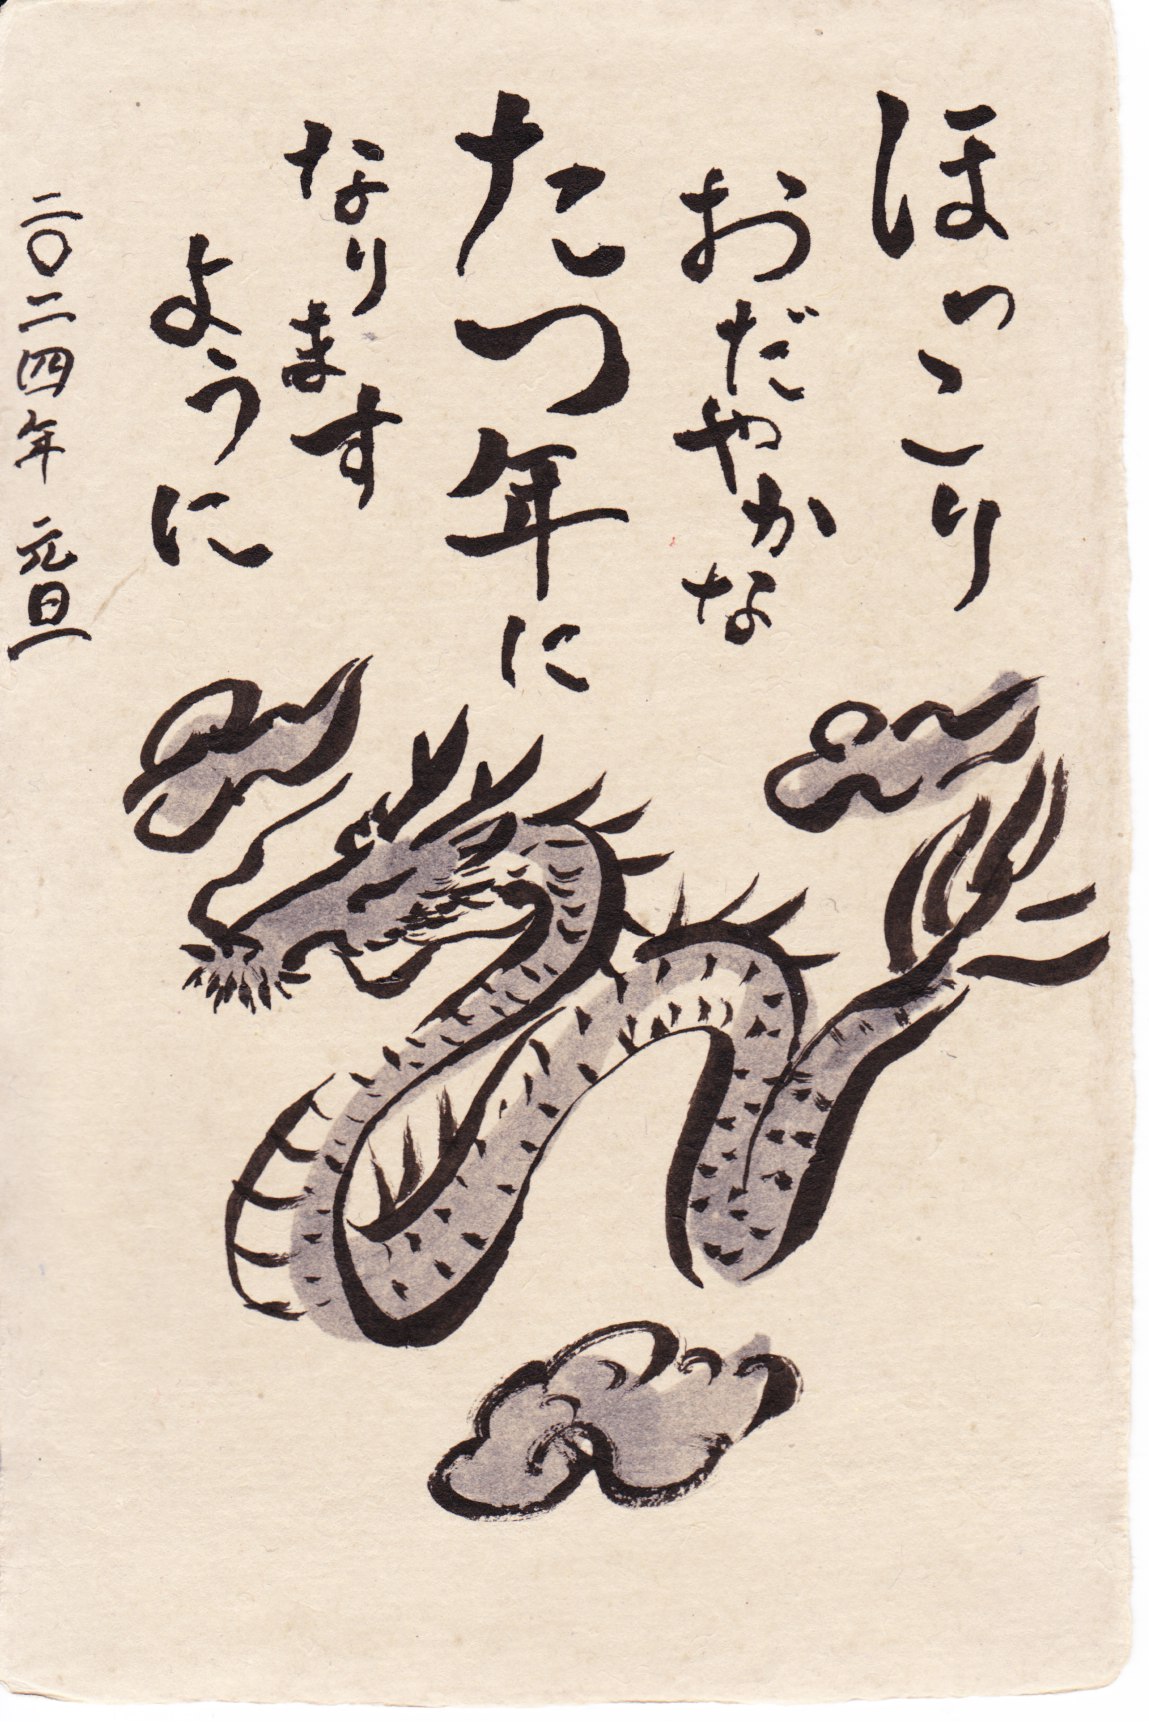 ほっこり
おだやかな
たつ年に
なります
ように
二〇二四年 元旦